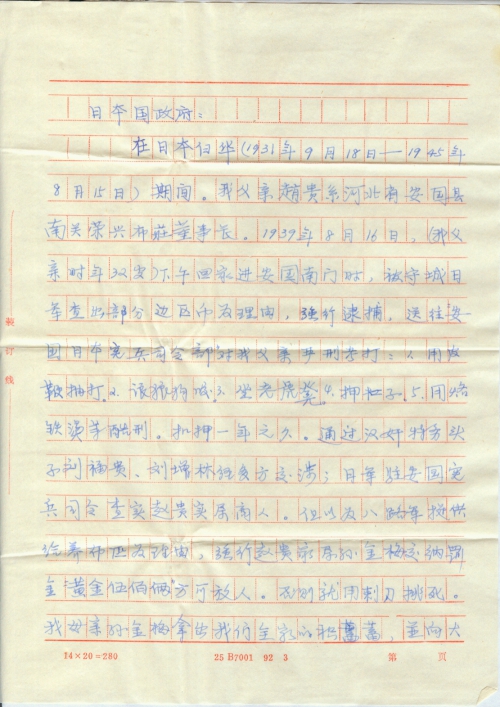 日本国政府：
在日本侵华(1931年9月18日—1945年
8月15日)期间。我父亲赵贵系河北省安国县
南关荣兴布莊董事长。1939年8月16日，(我父
亲时年32岁)下午回家进安国南门时，被守城日
军查出部分边区币为理由，强行逮捕，送往安
国日本宪兵司令部"对我父亲严刑拷打：1.用皮
鞭抽打.2.让狼狗咬.3.坐老虎凳.4.押杠子.5.用烙
铁烫等酷刑。扣押一年之久。通过汉奸特务头
子刘福贵、刘增林经多方交涉；日军驻安国宪
兵司令查实赵贵实属商人。但以为八路军提供
给养布匹为理由，强行赵贵家属孙金梅交纳罚
金"黄金伍佰俩"方可放人。否则就用刺刀挑死。
我母亲孙金梅拿出我们全家的积蓄，并向大
装订线
14×20=280
25 B7001 92 3
第 页